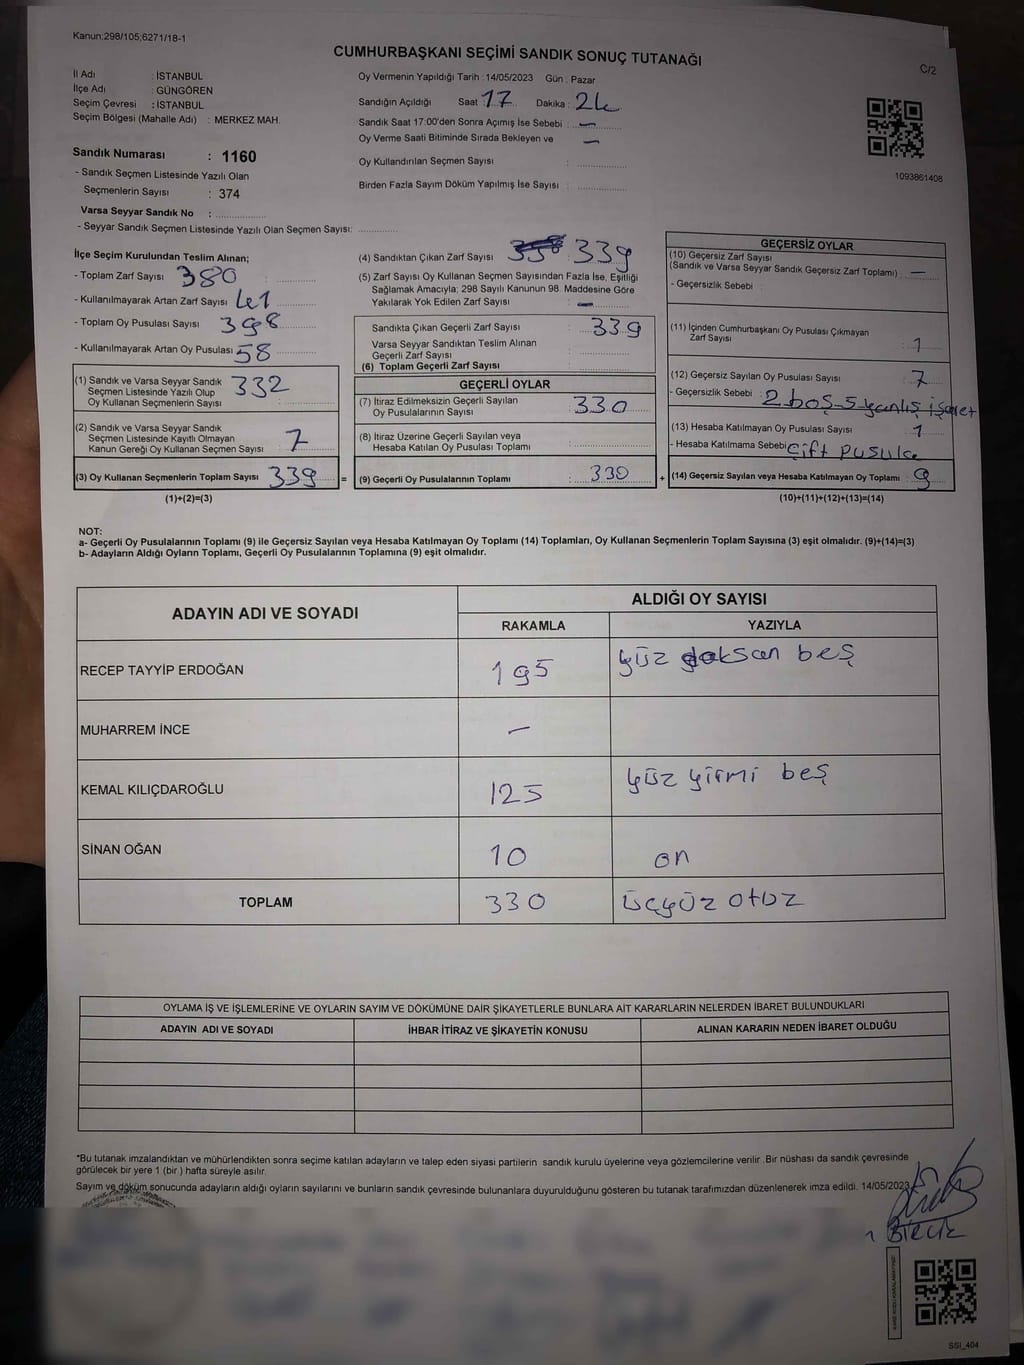 Kanun:298/105;6271/18-1
CUMHURBAŞKANI SEÇİMİ SANDIK SONUÇ TUTANAĞI
C/2
İl Adı : İSTANBUL
İlçe Adı : GÜNGÖREN
Seçim Çevresi : İSTANBUL
Seçim Bölgesi (Mahalle Adı) : MERKEZ MAH.
Oy Vermenin Yapıldığı Tarih :14/05/2023 Gün : Pazar
Sandığın Açıldığı Saat 17 Dakika : 24
Sandık Saat 17:00'den Sonra Açımış İse Sebebi : —
Oy Verme Saati Bitiminde Sırada Bekleyen ve —
Oy Kullandırılan Seçmen Sayısı :
Birden Fazla Sayım Döküm Yapılmış İse Sayısı :
1093861408
Sandık Numarası : 1160
- Sandık Seçmen Listesinde Yazılı Olan
Seçmenlerin Sayısı : 374
Varsa Seyyar Sandık No :
- Seyyar Sandık Seçmen Listesinde Yazılı Olan Seçmen Sayısı:
İlçe Seçim Kurulundan Teslim Alınan;
- Toplam Zarf Sayısı 380
- Kullanılmayarak Artan Zarf Sayısı 41
- Toplam Oy Pusulası Sayısı 398
- Kullanılmayarak Artan Oy Pusulası 58
(1) Sandık ve Varsa Seyyar Sandık
Seçmen Listesinde Yazılı Olup
Oy Kullanan Seçmenlerin Sayısı : 332
(2) Sandık ve Varsa Seyyar Sandık
Seçmen Listesinde Kayıtlı Olmayan
Kanun Gereği Oy Kullanan Seçmen Sayısı : 7
(3) Oy Kullanan Seçmenlerin Toplam Sayısı : 339 =
(1)+(2)=(3)
(4) Sandıktan Çıkan Zarf Sayısı : 339
(5) Zarf Sayısı Oy Kullanan Seçmen Sayısından Fazla İse, Eşitliği
Sağlamak Amacıyla; 298 Sayılı Kanunun 98. Maddesine Göre
Yakılarak Yok Edilen Zarf Sayısı : —
Sandıkta Çıkan Geçerli Zarf Sayısı : 339
Varsa Seyyar Sandıktan Teslim Alınan
Geçerli Zarf Sayısı :
(6) Toplam Geçerli Zarf Sayısı :
GEÇERLİ OYLAR
(7) İtiraz Edilmeksizin Geçerli Sayılan
Oy Pusulalarının Sayısı : 330
(8) İtiraz Üzerine Geçerli Sayılan veya
Hesaba Katılan Oy Pusulası Toplamı :
(9) Geçerli Oy Pusulalarının Toplamı : 330 +
GEÇERSİZ OYLAR
(10) Geçersiz Zarf Sayısı
(Sandık ve Varsa Seyyar Sandık Geçersiz Zarf Toplamı) : —
- Geçersizlik Sebebi :
(11) İçinden Cumhurbaşkanı Oy Pusulası Çıkmayan
Zarf Sayısı : 1
(12) Geçersiz Sayılan Oy Pusulası Sayısı : 7
- Geçersizlik Sebebi : 2 boş - 5 yanlış işaret
(13) Hesaba Katılmayan Oy Pusulası Sayısı : 1
- Hesaba Katılmama Sebebi : Çift pusula
(14) Geçersiz Sayılan veya Hesaba Katılmayan Oy Toplamı : 9
(10)+(11)+(12)+(13)=(14)
NOT:
a- Geçerli Oy Pusulalarının Toplamı (9) ile Geçersiz Sayılan veya Hesaba Katılmayan Oy Toplamı (14) Toplamları, Oy Kullanan Seçmenlerin Toplam Sayısına (3) eşit olmalıdır. (9)+(14)=(3)
b- Adayların Aldığı Oyların Toplamı, Geçerli Oy Pusulalarının Toplamına (9) eşit olmalıdır.
ADAYIN ADI VE SOYADI
ALDIĞI OY SAYISI
RAKAMLA YAZIYLA
RECEP TAYYİP ERDOĞAN 195 yüz doksan beş
MUHARREM İNCE —
KEMAL KILIÇDAROĞLU 125 yüz yirmi beş
SİNAN OĞAN 10 on
TOPLAM 330 üçyüz otuz
OYLAMA İŞ VE İŞLEMLERİNE VE OYLARIN SAYIM VE DÖKÜMÜNE DAİR ŞİKAYETLERLE BUNLARA AİT KARARLARIN NELERDEN İBARET BULUNDUKLARI
ADAYIN ADI VE SOYADI İHBAR İTİRAZ VE ŞİKAYETİN KONUSU ALINAN KARARIN NEDEN İBARET OLDUĞU
*Bu tutanak imzalandıktan ve mühürlendikten sonra seçime katılan adayların ve talep eden siyasi partilerin sandık kurulu üyelerine veya gözlemcilerine verilir. Bir nüshası da sandık çevresinde
görülecek bir yere 1 (bir ) hafta süreyle asılır.
Sayım ve döküm sonucunda adayların aldığı oyların sayılarını ve bunların sandık çevresinde bulunanlara duyurulduğunu gösteren bu tutanak tarafımızdan düzenlenerek imza edildi. 14/05/2023
SSI_404